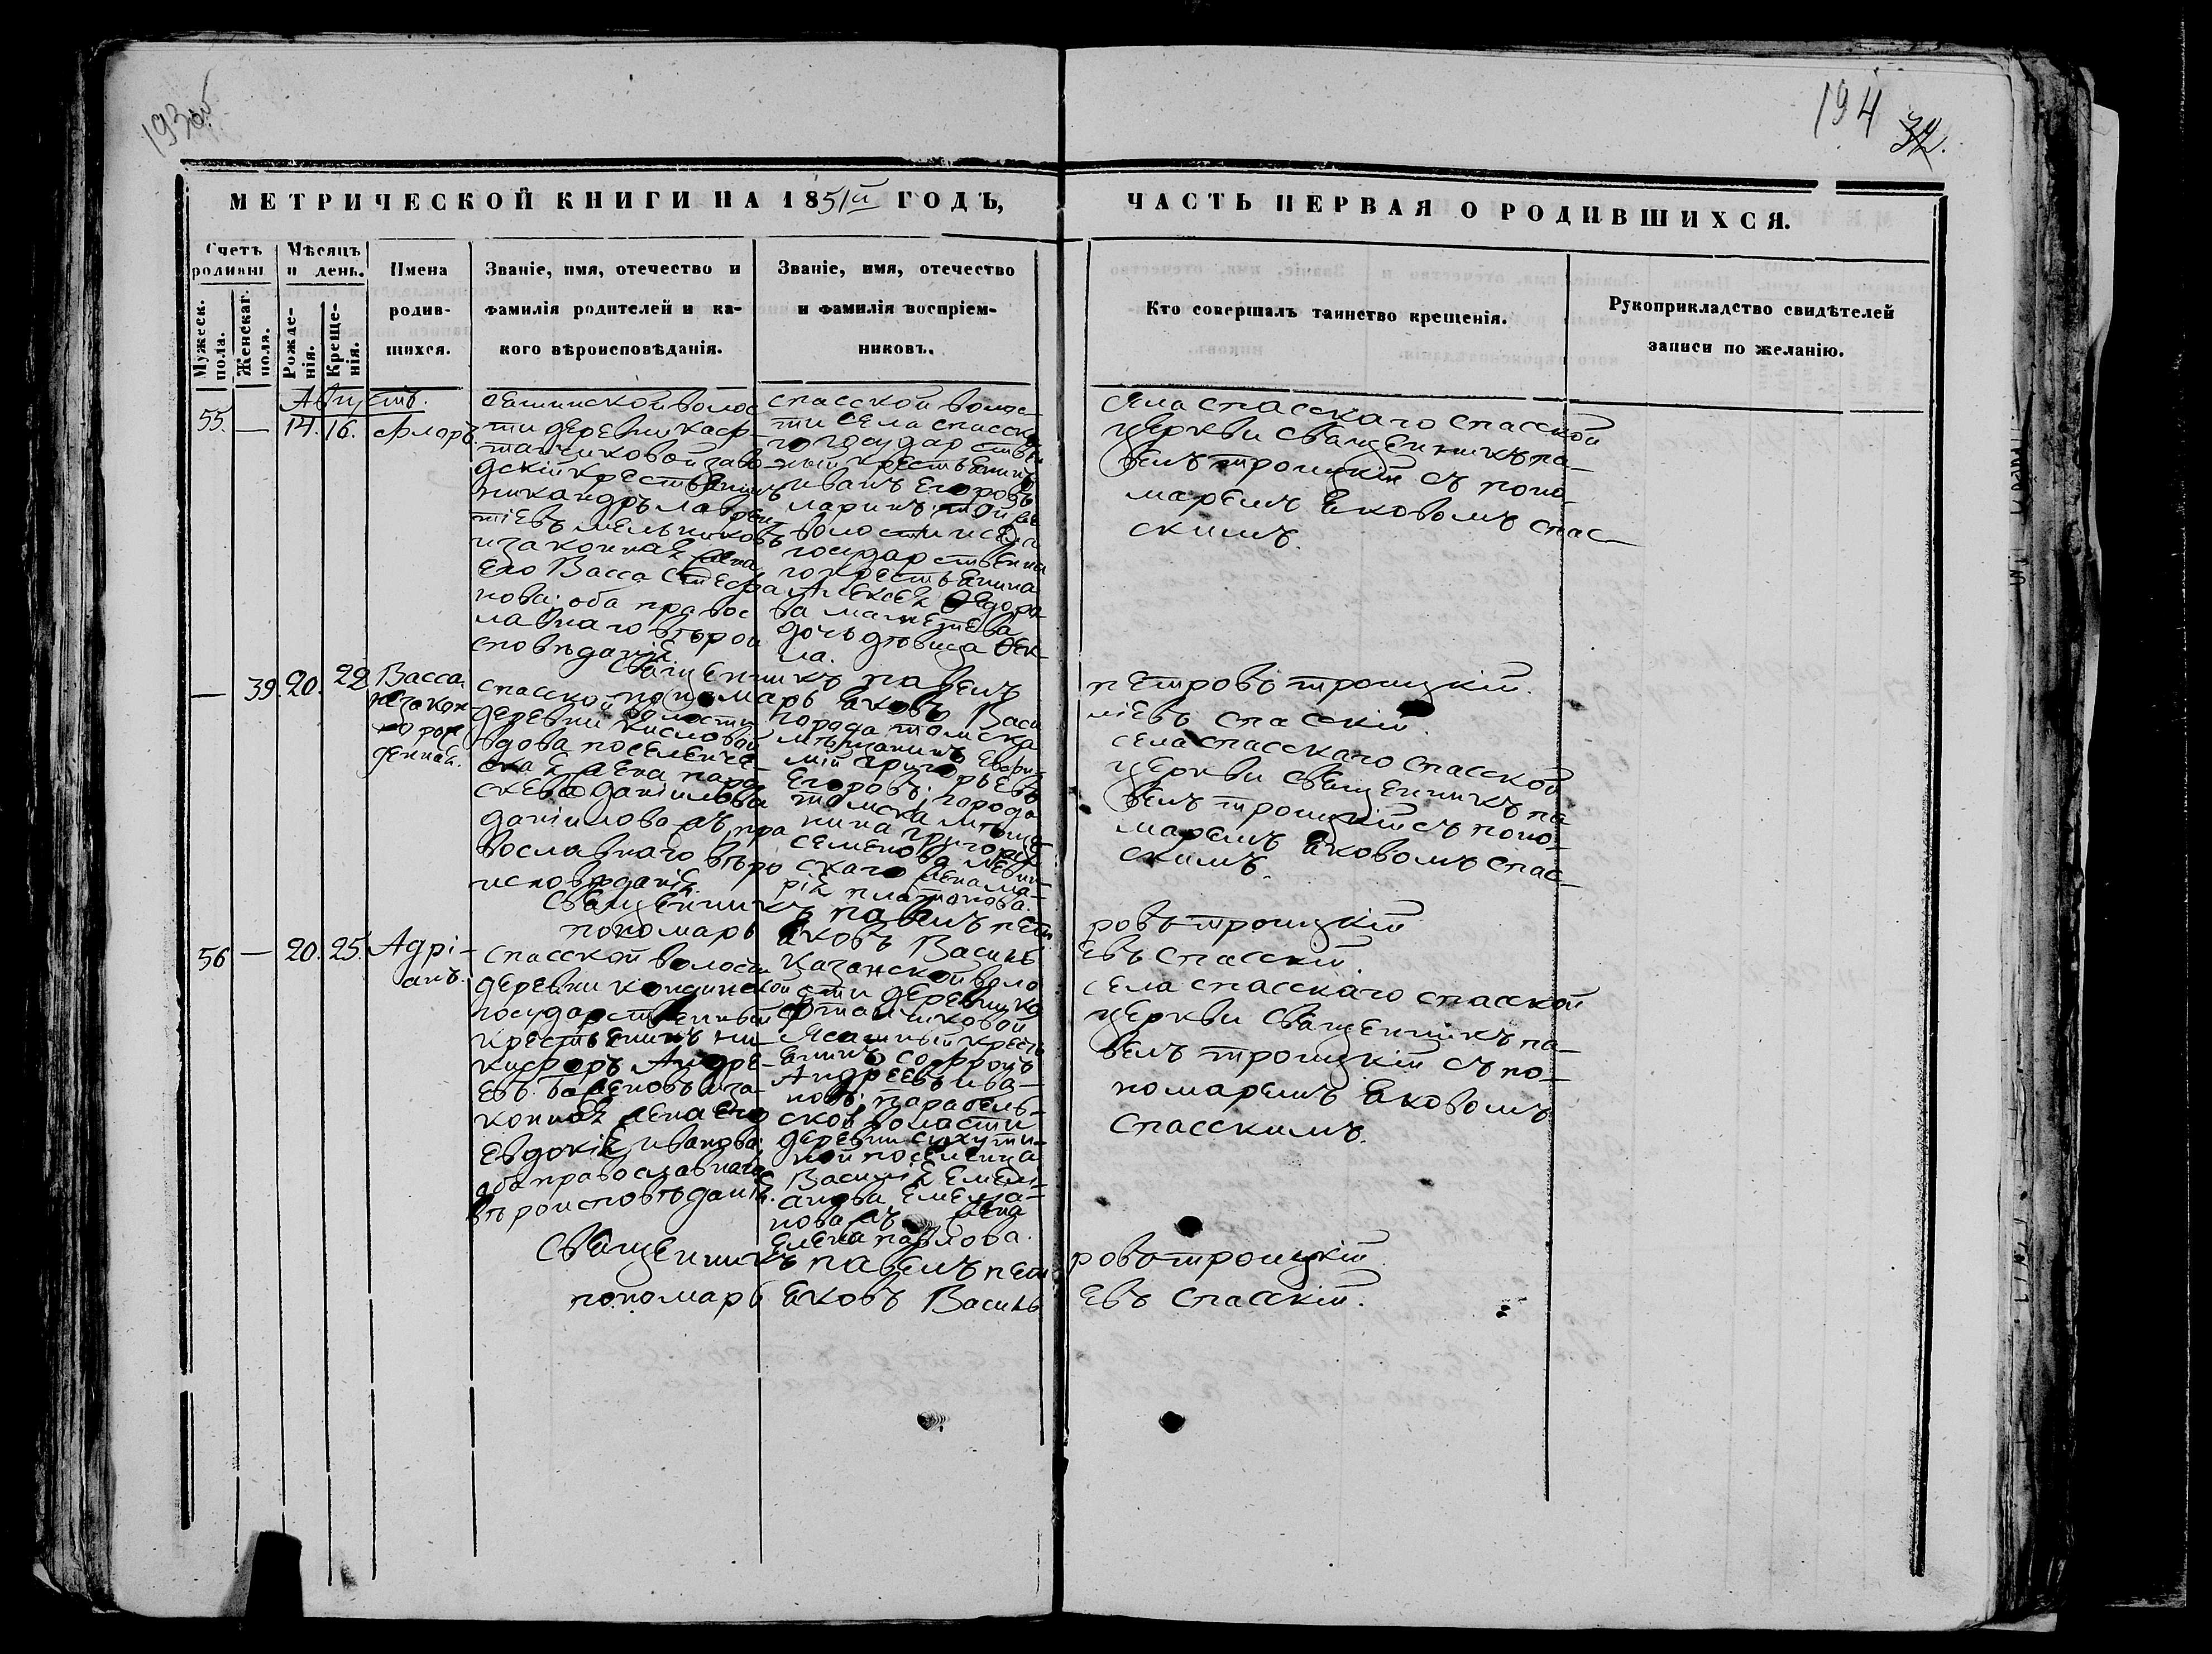 193об
194
32.
МЕТРИЧЕСКОЙ КНИГИ НА 1851й ГОДЪ,
ЧАСТЬ ПЕРВАЯ О РОДИВШИХСЯ.
Счетъ родивш
Мужеск. пола.
Женскаг. поля.
Мѣсяцъ и день.
Рожде-
нія.
Креще-
нія.
Имена
родив-
шихся.
Званіе, имя, отечество и
фамилія родителей и ка-
кого вѣроисповѣданія.
Званіе, имя, отечество
и фамилія воспріем-
никовъ.
Кто совершалъ таинство крещенія.
Рукоприкладство свидѣтелей
записи по желанію.
Августъ.
55. — 14. 16. Флоръ.
волос
ти деревни
заво
дскій крестьянинъ
никандръ лаврен
тіевъ мельниковъ
и законная жена
его Васса Стефа
нова. оба правос
лавнаго вѣрои
сповѣданія
спасской волос
ти села спасска
го государствен
ный крестьянинъ
иванъ Егоровъ
ларинъ; той же
волости и села
государственна
го крестьянина
Алексея Ѳедоро
ва
дочь дѣвица Ѳек-
ла.
села спасскаго спасской
церкви священникъ па-
велъ троицкій съ поно-
маремъ яковомъ спас-
скимъ.
Священникъ павелъ петровъ троицкій.
пономарь яковъ Васи ліевъ спасскій.
— 39. 20. 22 Васса
незакон
но рож
денная.
спасской волости
деревни кисловой
вдова поселенче
ская жена пара
скева даніилова
даніилова жъ, пра
вославнаго вѣро
исповѣданія.
города томска
мѣщанинъ Евфи
мій григорьевъ
Егоровъ; города
томска мѣща
нина григорія
семенова
скаго жена ма-
рія платонова.
села спасскаго спасской
церкви священникъ па
велъ троицкій съ поно-
маремъ яковомъ спас-
скимъ.
Священникъ павелъ пет ровъ троицкій
пономарь яковъ Василь евъ спасскій.
56 — 20. 25. Адрі-
анъ.
спасской волости
деревни
государственный
крестьянинъ ни-
кифоръ Андре-
евъ и за-
конная жена его
Евдокія иванова.
оба православнаго
вѣроисповѣданія.
казанской воло
сти деревни ка
фтанчиковой
Ясашный кресть
янинъ софронъ
Андреевъ ива-
новъ; парабель-
ской волости
деревни
кой поселенца
Василія Емель-
янова Емелья-
нова жъ жена
Елена павлова.
села спасскаго спасской
церкви священникъ па-
велъ троицкій съ по-
номаремъ яковомъ
спасскимъ.
Священникъ павелъ пет ровъ троицкій
пономарь яковъ Василь евъ спасскій.